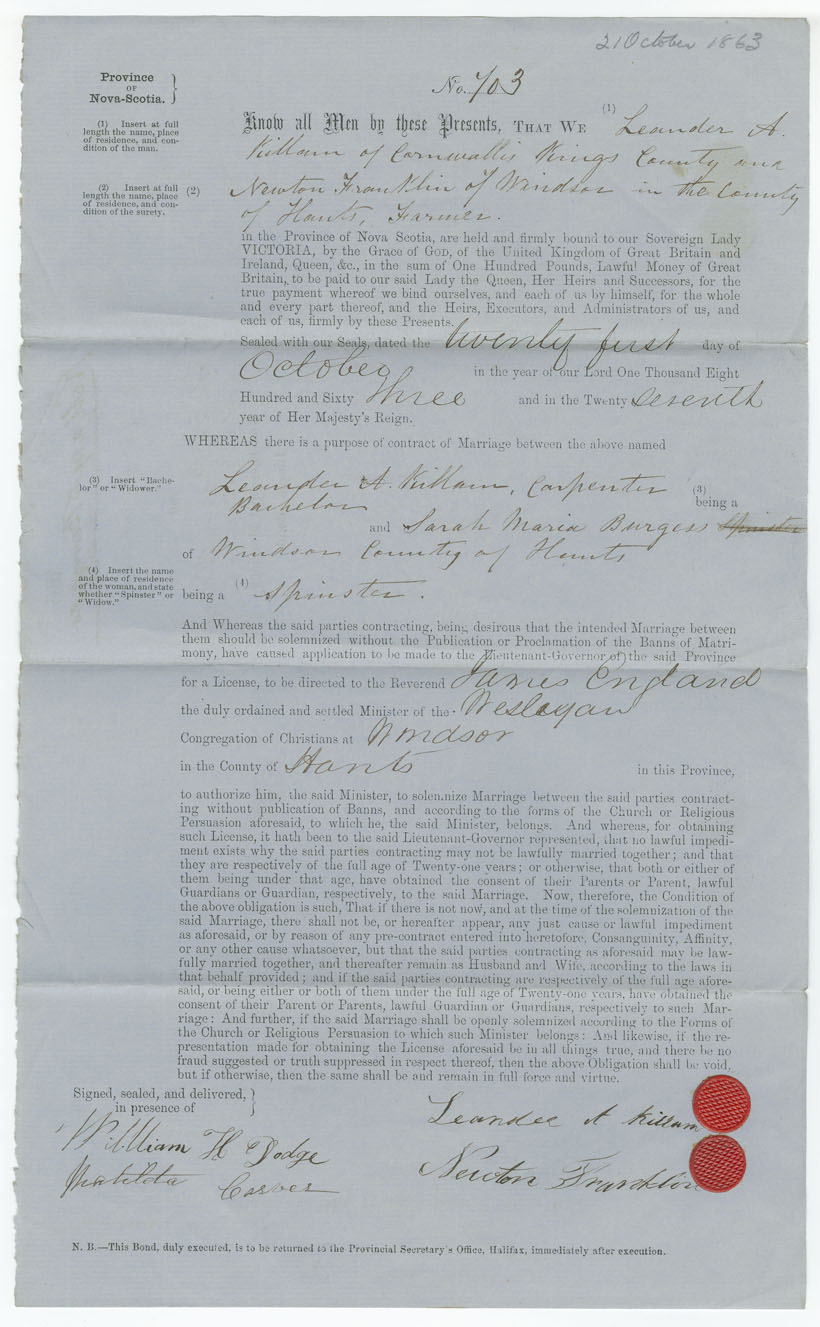 21 October 1863
Province
OF
Nova-Scotia.
No. 703
(1) Insert at full
length the name, place
of residence, and con-
dition of the man.
Know all Men by these Presents, THAT WE (1) Leander A.
Killam of Cornwallis Kings County and
(2) Insert at full
length the name, place
of residence, and con-
dition of the surety.
(2) Newton Franklin of Windsor in the County
of Hants, Farmer.
in the Province of Nova Scotia, are held and firmly bound to our Sovereign Lady
VICTORIA, by the Grace of GOD, of the United Kingdom of Great Britain and
Ireland, Queen, &c., in the sum of One Hundred Pounds, Lawful Money of Great
Britain, to be paid to our said Lady the Queen, Her Heirs and Successors, for the
true payment whereof we bind ourselves, and each of us by himself, for the whole
and every part thereof, and the Heirs, Executors, and Administrators of us, and
each of us, firmly by these Presents.
Sealed with our Seals, dated the twenty first day of
October in the year of our Lord One Thousand Eight
Hundred and Sixty three and in the Twenty seventh
year of Her Majesty's Reign.
WHEREAS there is a purpose of contract of Marriage between the above named
(3) Insert "Bache-
lor" or "Widower."
Leander A. Killam, Carpenter (3)
being a
Bachelor
and Sarah Maria Burgess Spinster
of Windsor County of Hants
(4) Insert the name
and place of residence
of the woman, and state
whether "Spinster" or
"Widow."
being a (4) Spinster.
And Whereas the said parties contracting, being desirous that the intended Marriage between
them should be solemnized without the Publication or Proclamation of the Banns of Matri-
mony, have caused application to be made to the Lieutenant-Governor of the said Province
for a License, to be directed to the Reverend James England
the duly ordained and settled Minister of the Wesleyan
Congregation of Christians at Windsor
in the County of Hants in this Province,
to authorize him, the said Minister, to solemnize Marriage between the said parties contract-
ing without publication of Banns, and according to the forms of the Church or Religious
Persuasion aforesaid, to which he, the said Minister, belongs. And whereas, for obtaining
such License, it hath been to the said Lieutenant-Governor represented, that no lawful impedi-
ment exists why the said parties contracting may not be lawfully married together; and that
they are respectively of the full age of Twenty-one years; or otherwise, that both or either of
them being under that age, have obtained the consent of their Parents or Parent, lawful
Guardians or Guardian, respectively, to the said Marriage. Now, therefore, the Condition of
the above obligation is such, That if there is not now, and at the time of the solemnization of the
said Marriage, there shall not be, or hereafter appear, any just cause or lawful impediment
as aforesaid, or by reason of any pre-contract entered into heretofore, Consanguinity, Affinity,
or any other cause whatsoever, but that the said parties contracting as aforesaid may be law-
fully married together, and thereafter remain as Husband and Wife, according to the laws in
that behalf provided; and if the said parties contracting are respectively of the full age afore-
said, or being either or both of them under the full age of Twenty-one years, have obtained the
consent of their Parent or Parents, lawful Guardian or Guardians, respectively to such Mar-
riage: And further, if the said Marriage shall be openly solemnized according to the Forms of
the Church or Religious Persuasion to which such Minister belongs: And likewise, if the re-
presentation made for obtaining the License aforesaid be in all things true, and there be no
fraud suggested or truth suppressed in respect thereof, then the above Obligation shall be void,
but if otherwise, then the same shall be and remain in full force and virtue.
Signed, sealed, and delivered,
in presence of
Leander A Killam
William H Dodge
Matilda Carver
Newton Franklin
N. B.—This Bond, duly executed, is to be returned to the Provincial Secretary's Office, Halifax, immediately after execution.